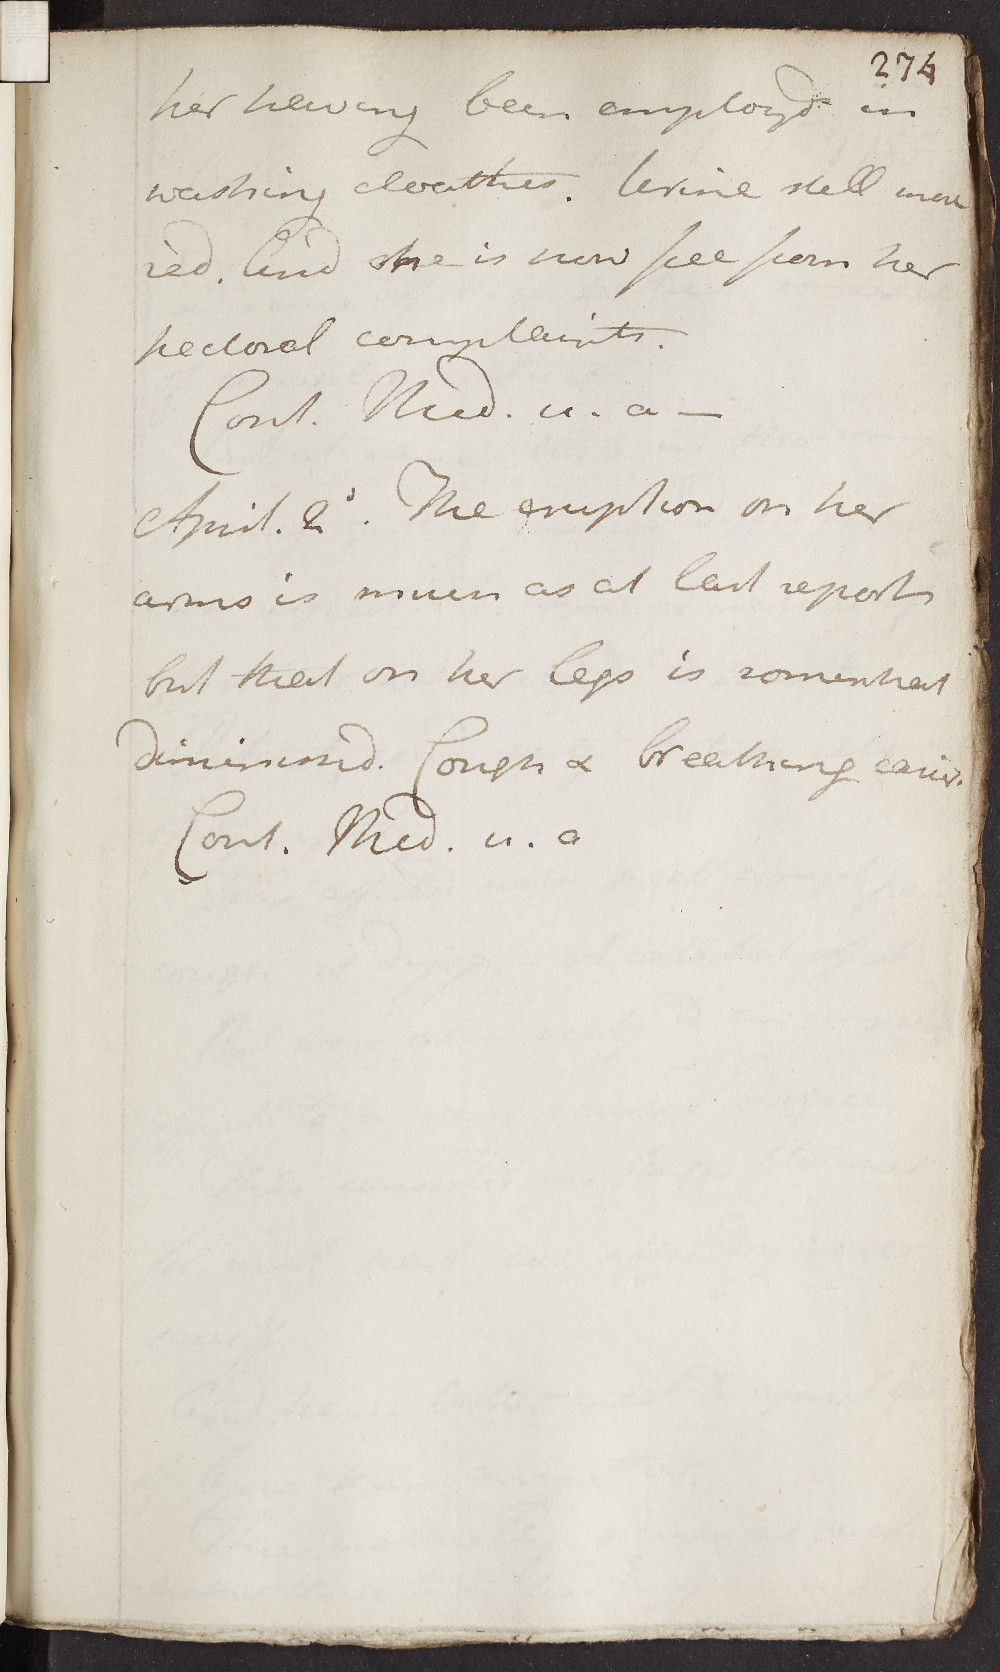 274
her having been employd in
washing cloathes. Urine still more
red. And she is now free from her
pectoral complaints.
Cont. Med. u. a —
April. 2d. The eruption on her
arms is much as at last report
but that on her legs is somewhat
diminishd. Cough & breathing easier.
Cont. Med. u. a